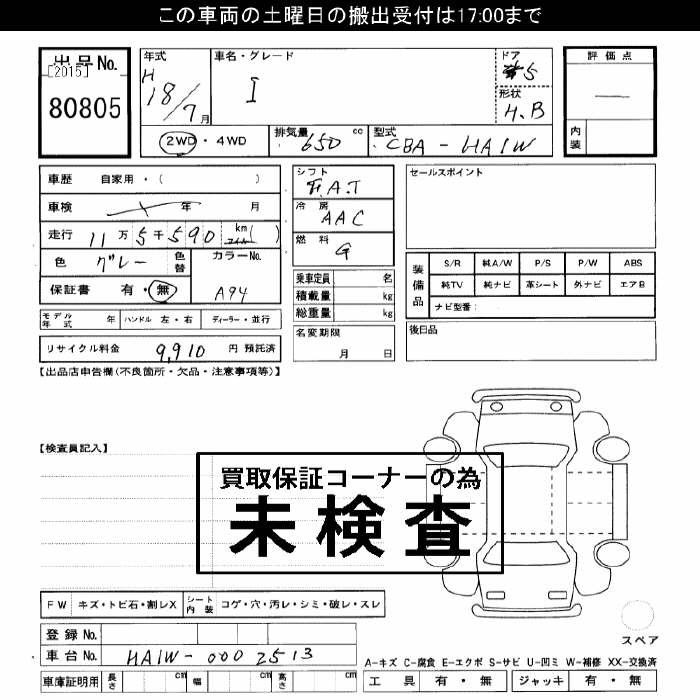 この車両の土曜日の搬出受付は17:00まで
出品No. [2015] 80805
年式 H 18/7月
車名・グレード I
ドア 5
形状 H.B
評価点 ―
内装
2WD・4WD
排気量 650 cc
型式 CBA-HA1W
車歴 自家用・( )
車検 年 月
走行 11万5千590 km マイル( )
色 グレー 色替 カラーNo. A94
保証書 有・無
モデル年式 年 ハンドル 左・右 ディーラー・並行
リサイクル料金 9,910 円 預託済
シフト F.A.T
冷房 AAC
燃料 G
乗車定員 名
積載量 kg
総重量 kg
名変期限 月 日
セールスポイント
装備品 S/R 純A/W P/S P/W ABS
純TV 純ナビ 革シート 外ナビ エアB
ナビ型番:
後日品
【出品店申告欄(不良箇所・欠品・注意事項等)】
【検査員記入】
買取保証コーナーの為
未検査
FW キズ・トビ石・割レX シート内装 コゲ・穴・汚レ・シミ・破レ・スレ
登録No.
車台No. HA1W-0002513
車庫証明用 長さ cm 幅 cm 高さ cm
スペア
A-キズ C-腐食 E-エクボ S-サビ U-凹ミ W-補修 XX-交換済
工具 有・無 ジャッキ 有・無